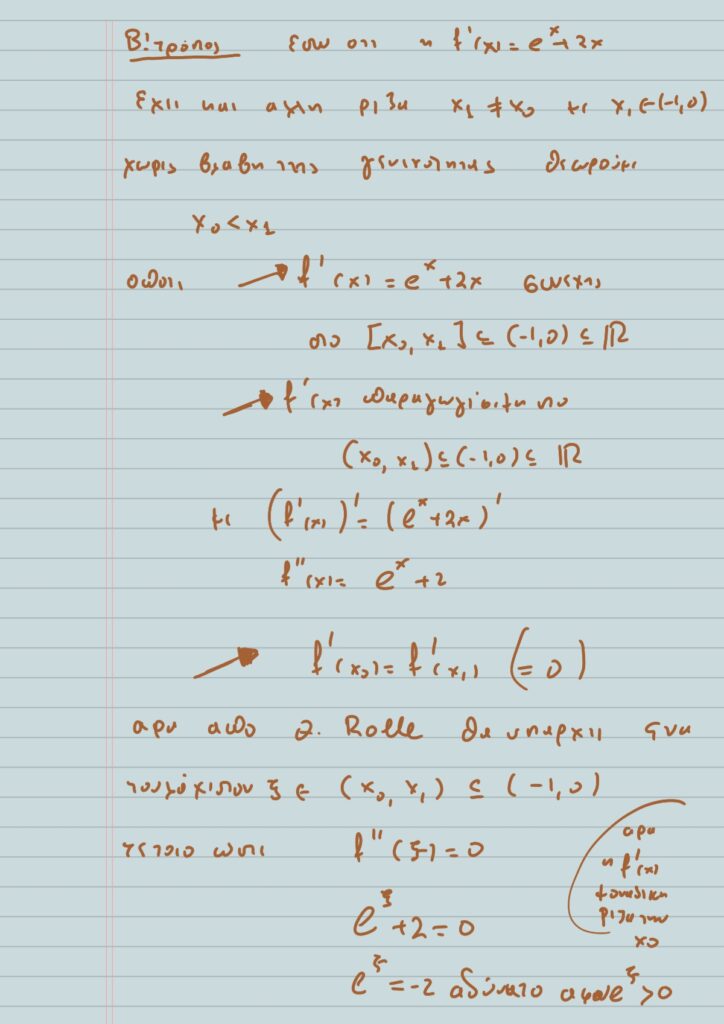 Β! τρόπος εστω οτι η f'(x) = e^x + 2x
Εχει και αλλη ριζα x₁ ≠ x₀ με x₁ ∈ (-1,0)
χωρις βλαβη της γενικοτητας θεωρούμε
x₀ < x₁
οποτε → f'(x) = e^x + 2x συνεχης
στο [x₀, x₁] ⊆ (-1,0) ⊆ ℝ
→ f'(x) παραγωγίσιμη στο
(x₀, x₁) ⊆ (-1,0) ⊆ ℝ
με (f'(x))' = (e^x + 2x)'
f''(x) = e^x + 2
→ f'(x₀) = f'(x₁) (= 0)
αρα απο Θ. Rolle θα υπαρχει ενα
τουλάχιστον ξ ∈ (x₀, x₁) ⊆ (-1,0)
τετοιο ωστε f''(ξ) = 0
e^ξ + 2 = 0
e^ξ = -2 αδύνατο αφου e^ξ > 0
αρα
η f'(x)
μοναδικη
ριζα την
x₀